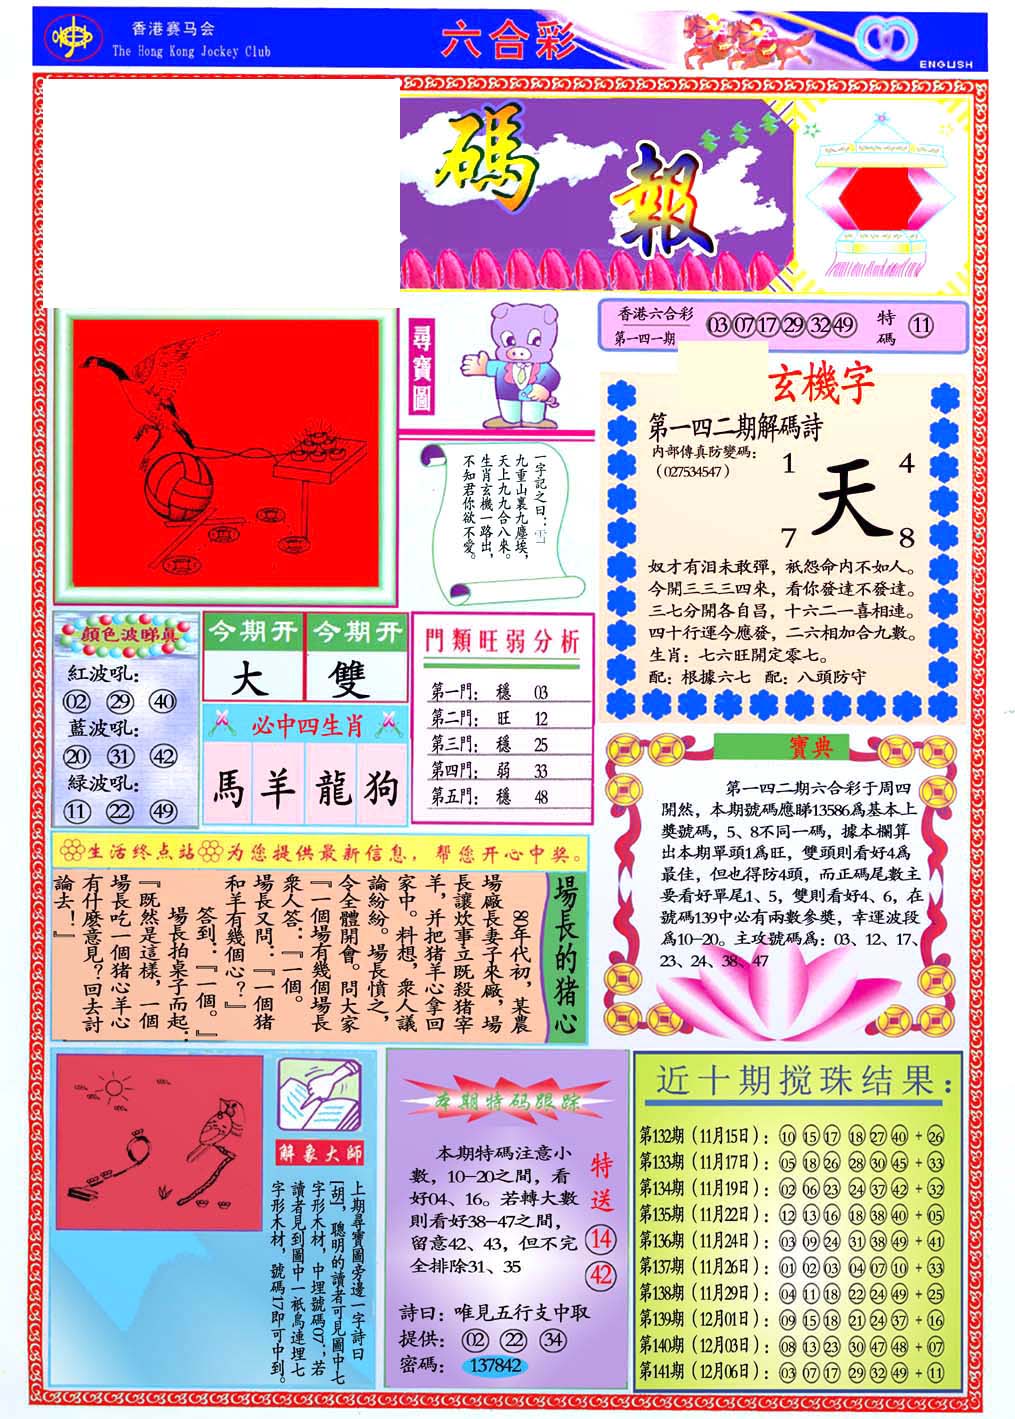 香港赛马会
The Hong Kong Jockey Club
六合彩
ENGLISH
碼報
尋寶圖
香港六合彩
第一四一期
03 07 17 29 32 49
特碼
11
玄機字
第一四二期解碼詩
内部傳真防變碼：
（027534547）
1 4
天
7 8
奴才有泪未敢彈，衹怨命内不如人。
今開三三三四來，看你發達不發達。
三七分開各自昌，十六二一喜相連。
四十行運今應發，二六相加合九數。
生肖：七六旺開定零七。
配：根據六七 配：八頭防守
一字記之曰：雪
九重山裏九塵埃，
天上九九合八來。
生肖玄機一路出，
不知君你欲不愛。
顔色波睇真
紅波吼：
02 29 40
藍波吼：
20 31 42
綠波吼：
11 22 49
今期开 今期开
大 雙
必中四生肖
馬 羊 龍 狗
門類旺弱分析
第一門： 穩 03
第二門： 旺 12
第三門： 穩 25
第四門： 弱 33
第五門： 穩 48
寶典
第一四二期六合彩于周四
開然，本期號碼應睇13586爲基本上
獎號碼，5、8不同一碼，據本欄算
出本期單頭1爲旺，雙頭則看好4爲
最佳，但也得防4頭，而正碼尾數主
要看好單尾1、5，雙則看好4、6，在
號碼139中必有兩數參獎，幸運波段
爲10-20。主攻號碼爲：03、12、17、
23、24、38、47
生活终点站 为您提供最新信息，帮您开心中奖。
場長的猪心
80年代初，某農
場廠長妻子來廠，場
長讓炊事立既殺猪宰
羊，并把猪羊心拿回
家中。料想，衆人議
論紛紛。場長憤之，
令全體開會。問大家
『一個場有幾個場長
衆人答：『一個。
場長又問：『一個猪
和羊有幾個心？』
答到：『一個。』
場長拍桌子而起：
『既然是這樣，一個
場長吃一個猪心羊心
有什麽意見？回去討
論去！』
解象大師
上期尋寶圖旁邊一字詩曰
[胡]，聰明的讀者可見圖中七
字形木材，中埋號碼07；若
讀者見到圖中一衹鳥連埋七
字形木材，號碼17即可中到。
本期特码跟踪
本期特碼注意小
數，10-20之間，看
好04、16。若轉大數
則看好38-47之間，
留意42、43，但不完
全排除31、35
特送
14
42
詩曰：唯見五行支中取
提供： 02 22 34
密碼： 137842
近十期搅珠结果：
第132期（11月15日）：10 15 17 18 27 40 + 26
第133期（11月17日）：05 18 26 28 30 45 + 33
第134期（11月19日）：02 06 23 24 37 42 + 32
第135期（11月22日）：12 13 16 18 38 40 + 05
第136期（11月24日）：03 09 24 31 38 49 + 41
第137期（11月26日）：01 02 03 04 07 10 + 33
第138期（11月29日）：04 11 18 22 24 49 + 25
第139期（12月01日）：09 15 18 21 24 37 + 16
第140期（12月03日）：08 13 23 30 47 48 + 07
第141期（12月06日）：03 07 17 29 32 49 + 11